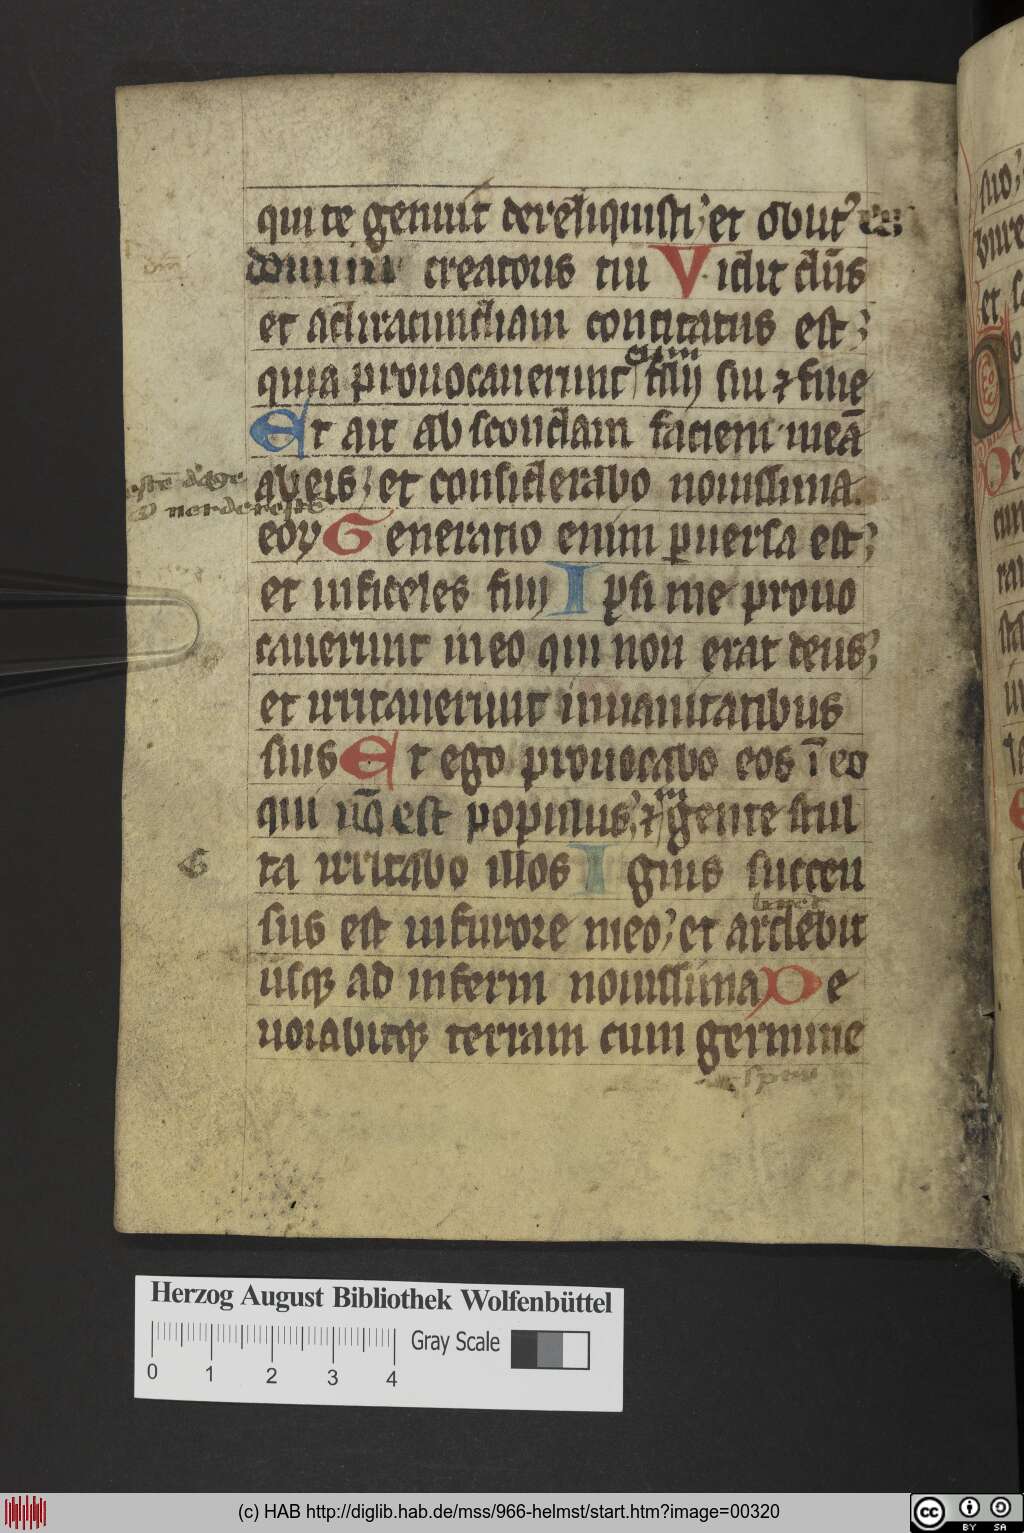 qui te genuit dereliquisti et obLit' es
domini creatoris tui Vidit dūs
et adiracundiam concitatus est
quia prouocauerunt eum filij sui ⁊ filie
Et ait abscondam faciem meā
ab eis et considerabo nouissima
eoꝝ Generatio enim ꝑuersa est
et infideles filij Ipsi me prouo
cauerunt in eo qui non erat deus
et irritauerunt in uanitatibus
suis Et ego prouocabo eos ī eo
qui nō est populus ⁊ in gente stul
ta irritabo illos Ignis succen
sus est in furore meo et ardebit
usqꝫ ad inferni nouissima De
uorabitqꝫ terram cum germine
suo
et
Herzog August Bibliothek Wolfenbüttel
0 1 2 3 4
Gray Scale
(c) HAB http://diglib.hab.de/mss/966-helmst/start.htm?image=00320
cc BY SA